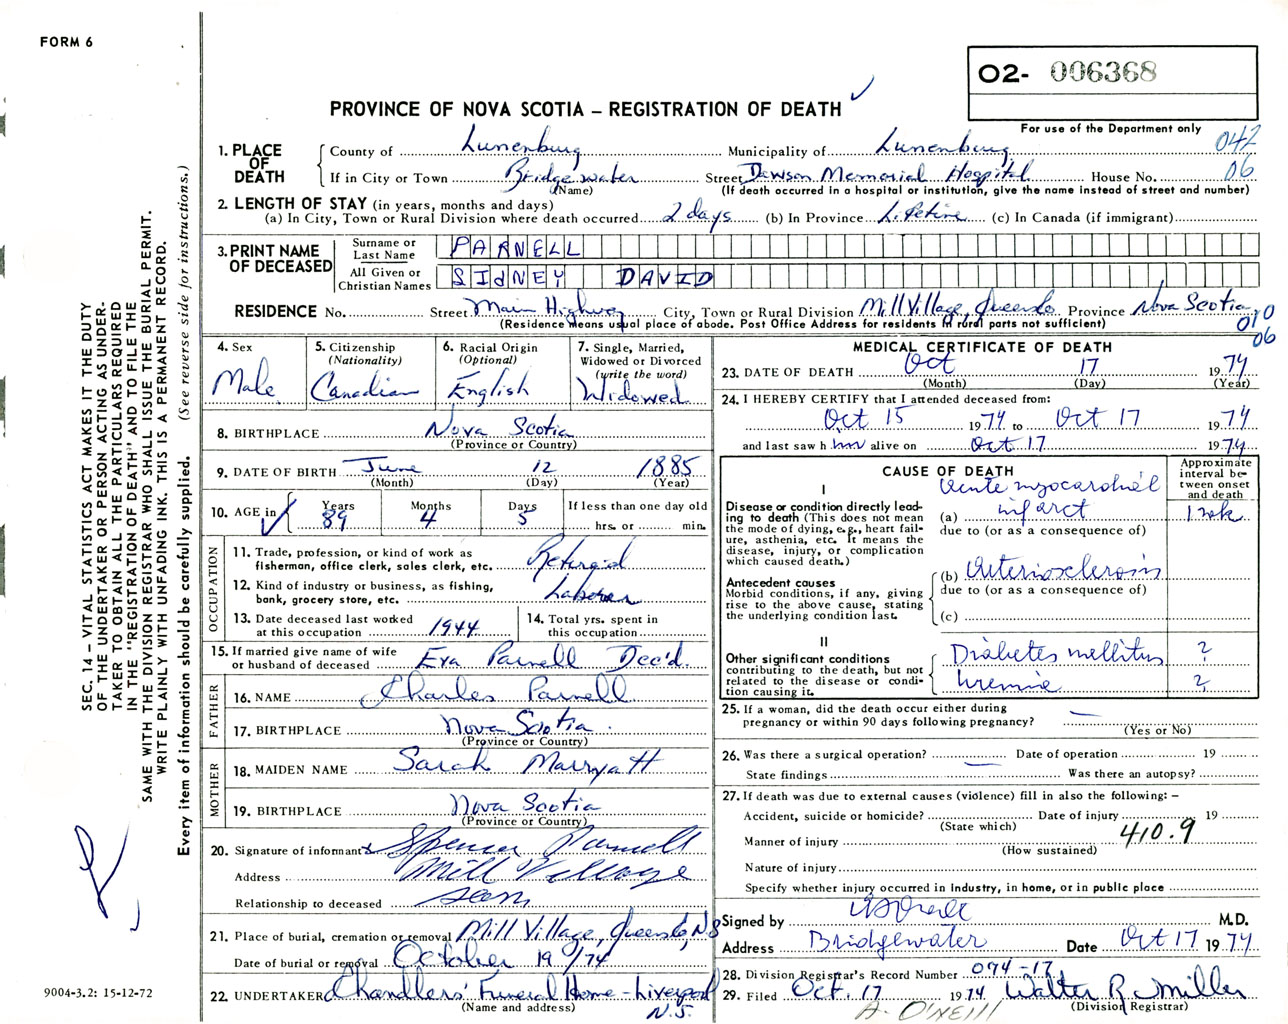 FORM 6
O2- 006368
PROVINCE OF NOVA SCOTIA – REGISTRATION OF DEATH
For use of the Department only
042
06
1. PLACE OF DEATH
County of Lunenburg Municipality of Lunenburg
If in City or Town Bridgewater Street Dawson Memorial Hospital House No.
(Name) (If death occurred in a hospital or institution, give the name instead of street and number)
2. LENGTH OF STAY (in years, months and days)
(a) In City, Town or Rural Division where death occurred 2 days (b) In Province (c) In Canada (if immigrant)
3. PRINT NAME OF DECEASED
Surname or Last Name PARNELL
All Given or Christian Names SIDNEY DAVID
RESIDENCE No. Street Main Highway City, Town or Rural Division Mill Village, Queens Co Province Nova Scotia
(Residence means usual place of abode. Post Office Address for residents in rural parts not sufficient)
010
06
4. Sex Male
5. Citizenship (Nationality) Canadian
6. Racial Origin (Optional) English
7. Single, Married, Widowed or Divorced (write the word) Widowed
8. BIRTHPLACE Nova Scotia
(Province or Country)
9. DATE OF BIRTH June 12 1885
(Month) (Day) (Year)
10. AGE in Years 89 Months 4 Days 5 If less than one day old hrs. or min.
OCCUPATION
11. Trade, profession, or kind of work as fisherman, office clerk, sales clerk, etc.
12. Kind of industry or business, as fishing, bank, grocery store, etc. Laborer
13. Date deceased last worked at this occupation 1944
14. Total yrs. spent in this occupation
15. If married give name of wife or husband of deceased Eva Parnell Dec'd.
FATHER
16. NAME Charles Parnell
17. BIRTHPLACE Nova Scotia
(Province or Country)
MOTHER
18. MAIDEN NAME Sarah Marryatt
19. BIRTHPLACE Nova Scotia
(Province or Country)
20. Signature of informant x Spencer Parnell
Address Mill Village
Relationship to deceased son
21. Place of burial, cremation or removal Mill Village, Queens Co, N.S
Date of burial or removal October 19/74
22. UNDERTAKER Chandlers' Funeral Home – Liverpool
(Name and address) N.S.
MEDICAL CERTIFICATE OF DEATH
23. DATE OF DEATH Oct 17 1974
(Month) (Day) (Year)
24. I HEREBY CERTIFY that I attended deceased from:
Oct 15 1974 to Oct 17 1974
and last saw h im alive on Oct 17 1974
CAUSE OF DEATH
Approximate interval between onset and death
I
Disease or condition directly leading to death (This does not mean the mode of dying, e.g., heart failure, asthenia, etc. It means the disease, injury, or complication which caused death.)
(a) Acute myocardial infarct 1 wk
due to (or as a consequence of)
Antecedent causes
Morbid conditions, if any, giving rise to the above cause, stating the underlying condition last.
(b) Arteriosclerosis
due to (or as a consequence of)
(c)
II
Other significant conditions contributing to the death, but not related to the disease or condition causing it.
Diabetes mellitus ?
Uremia ?
25. If a woman, did the death occur either during pregnancy or within 90 days following pregnancy? —
(Yes or No)
26. Was there a surgical operation? — Date of operation 19
State findings Was there an autopsy?
27. If death was due to external causes (violence) fill in also the following: –
Accident, suicide or homicide? Date of injury 19
(State which)
410.9
Manner of injury
(How sustained)
Nature of injury
Specify whether injury occurred in industry, in home, or in public place
Signed by M.D.
Address Bridgewater Date Oct 17 1974
28. Division Registrar's Record Number 074-17
29. Filed Oct. 17 1974 Walter R Miller
(Division Registrar)
A. O'NEILL
SEC. 14 – VITAL STATISTICS ACT MAKES IT THE DUTY
OF THE UNDERTAKER OR PERSON ACTING AS UNDER-
TAKER TO OBTAIN ALL THE PARTICULARS REQUIRED
IN THE "REGISTRATION OF DEATH" AND TO FILE THE
SAME WITH THE DIVISION REGISTRAR WHO SHALL ISSUE THE BURIAL PERMIT.
WRITE PLAINLY WITH UNFADING INK. THIS IS A PERMANENT RECORD.
Every item of information should be carefully supplied. (See reverse side for instructions.)
9004-3.2: 15-12-72